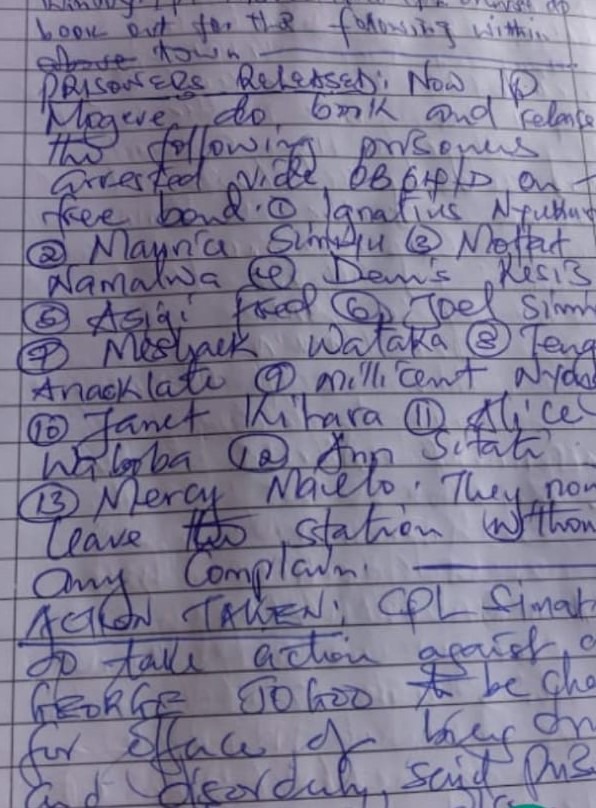 book out for the following within
above town
PRISONERS RELEASED: Now IP
Mogere do book and release
the following prisoners
arrested vide OB on
free bond. ① Ignatius
② Maurice Simiyu ③ Moffat
Namalwa ④ Denis
⑤ Asigi fred ⑥ Joel Simi
⑦ Meshack Wataka ⑧
Anacklate ⑨ millicent
⑩ Janet Kihara ⑪ Alice
⑫ Ann Sitati
⑬ Mercy . They now
leave the station withou
any Complain.
ACTION TAKEN: CPL
do take action against
GEORGE to be cha
for offence of
and disorderly said